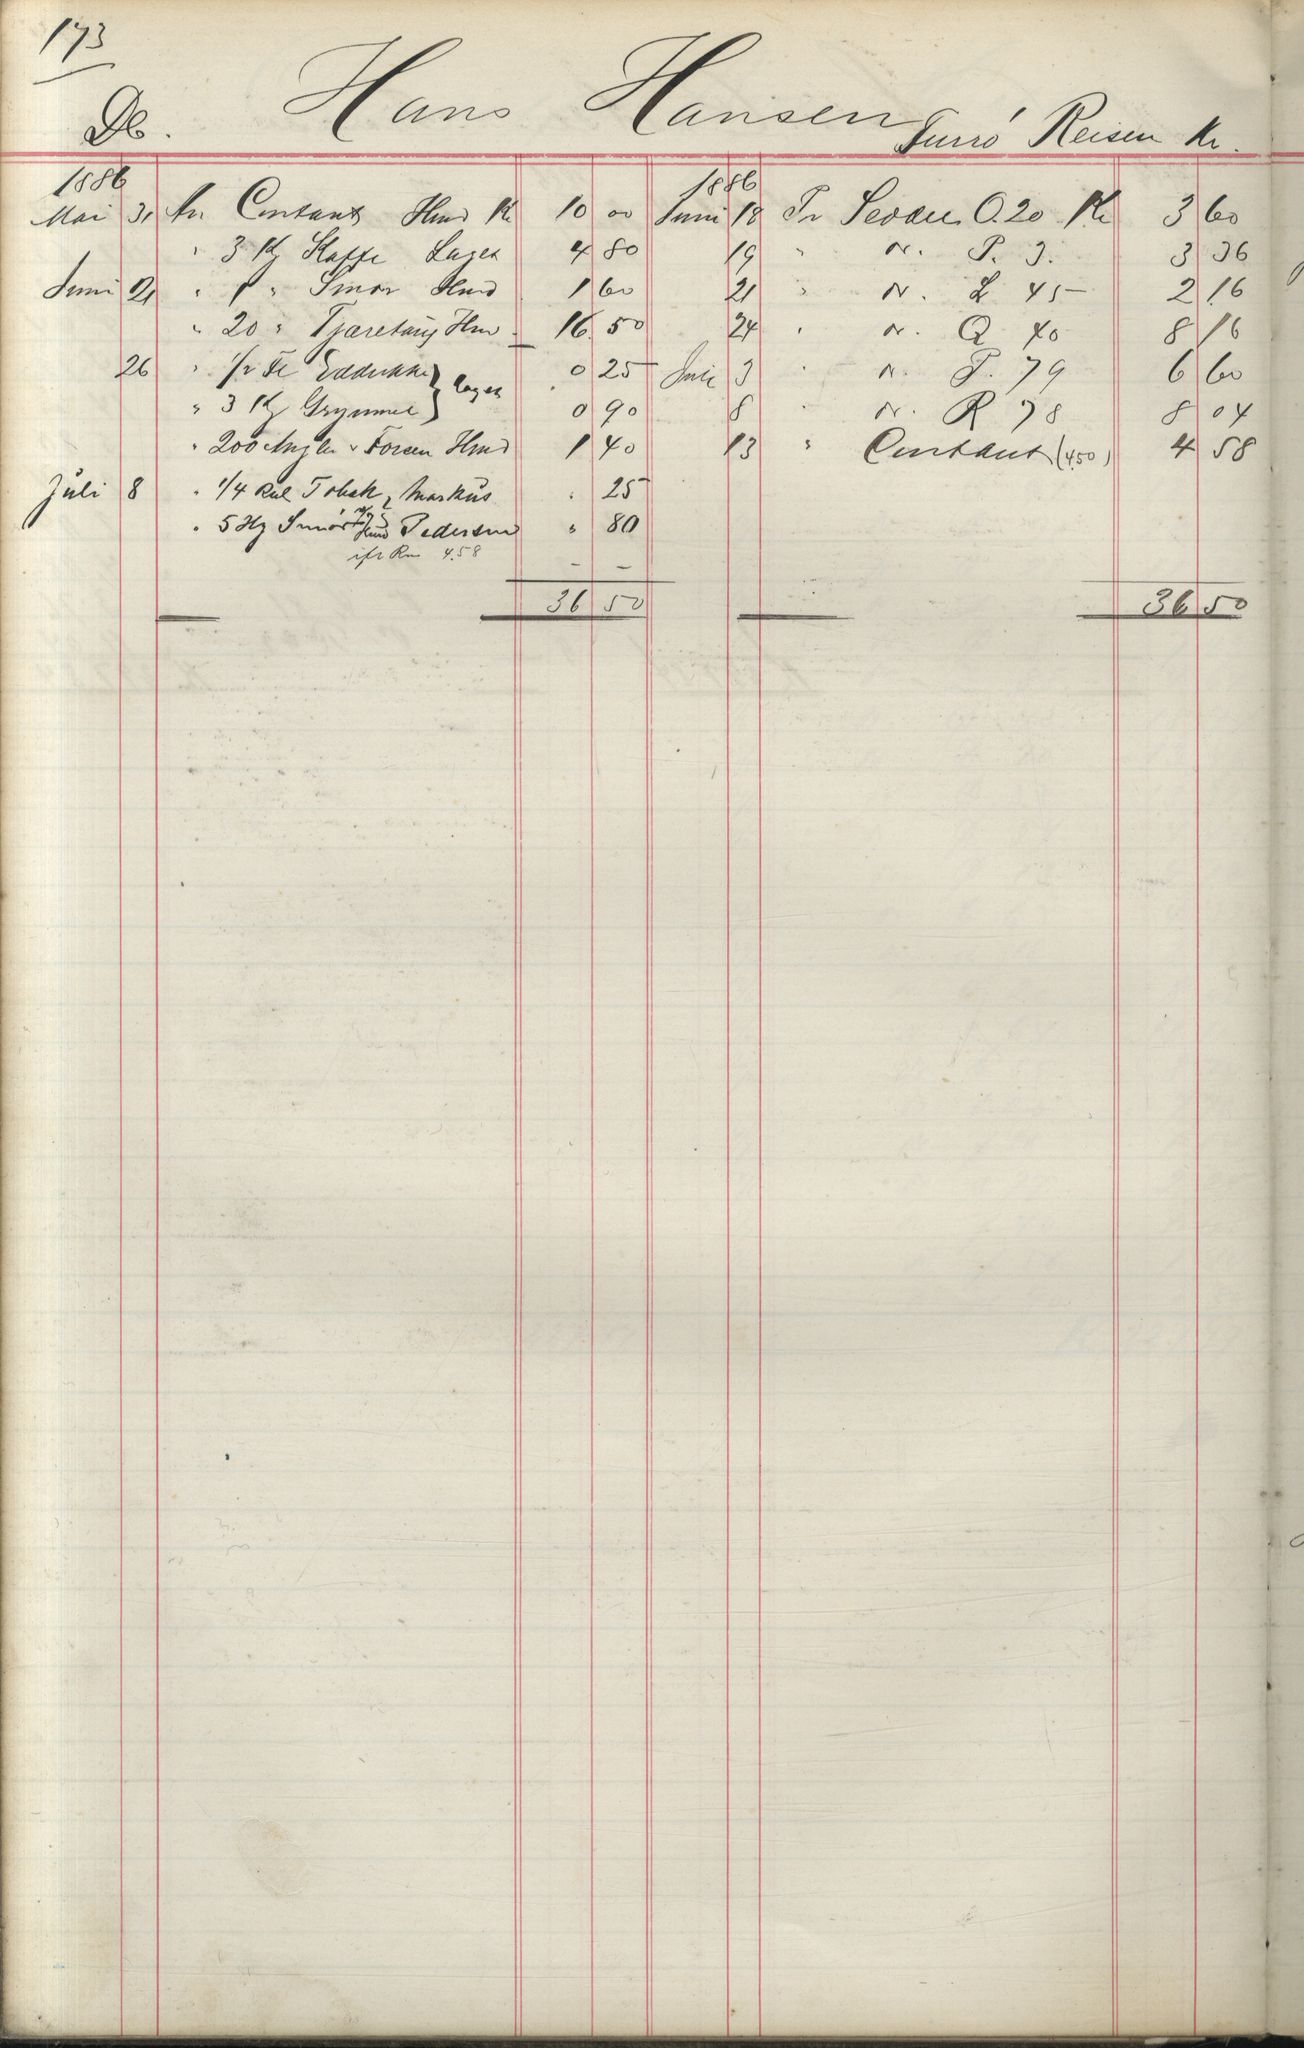 173
Hans Hansen
Db. Turrö Reisen Kr.
1886 1886
Mai 31 An Contant Hmd Kr 10 00 Juni 18 Pr Seddel O. 20 Kr 3 60
" 3 Kg Kaffe Lager 4 80 19 " N. P. 3. 3 36
Juni 21 " 1 " Smør Hmd 1 60 21 " N. L 45 2 16
" 20 " Tjæretaug Hmd 16 50 24 " N. Q 40 8 16
26 " 1/2 Fl Eddikke 0 25 Juli 3 " N. P. 79 6 60
" 3 Kg Grynmel } Lager 0 90 8 " N. R 78 8 04
" 200 Angler Hmd 1 40 13 " Contant (4.50) 4 58
Juli 8 " 1/4 Rul Tobak, Markus " 25
" 5 Hg Smør Hmd Pedersen " 80
4.58
36 50 36 50